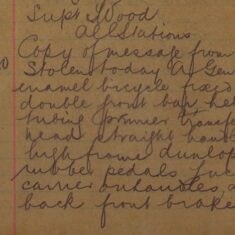 Supt Wood
All Stations
Copy of message from
Stolen today A Gen
enamel bicycle fixed
double front bar, hel
tubing premier transfer
head straight handl
high frame dunlop
rubber pedals, luc
carrier on handles, a
back front brake